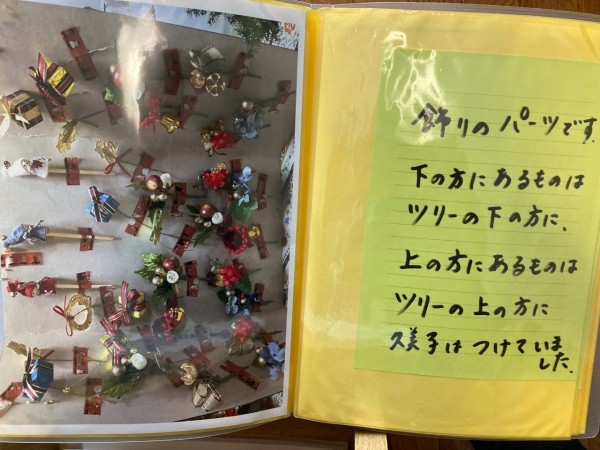 飾りのパーツです.
下の方にあるものは
ツリーの下の方に、
上の方にあるものは
ツリーの上の方に
久美子はつけていました.